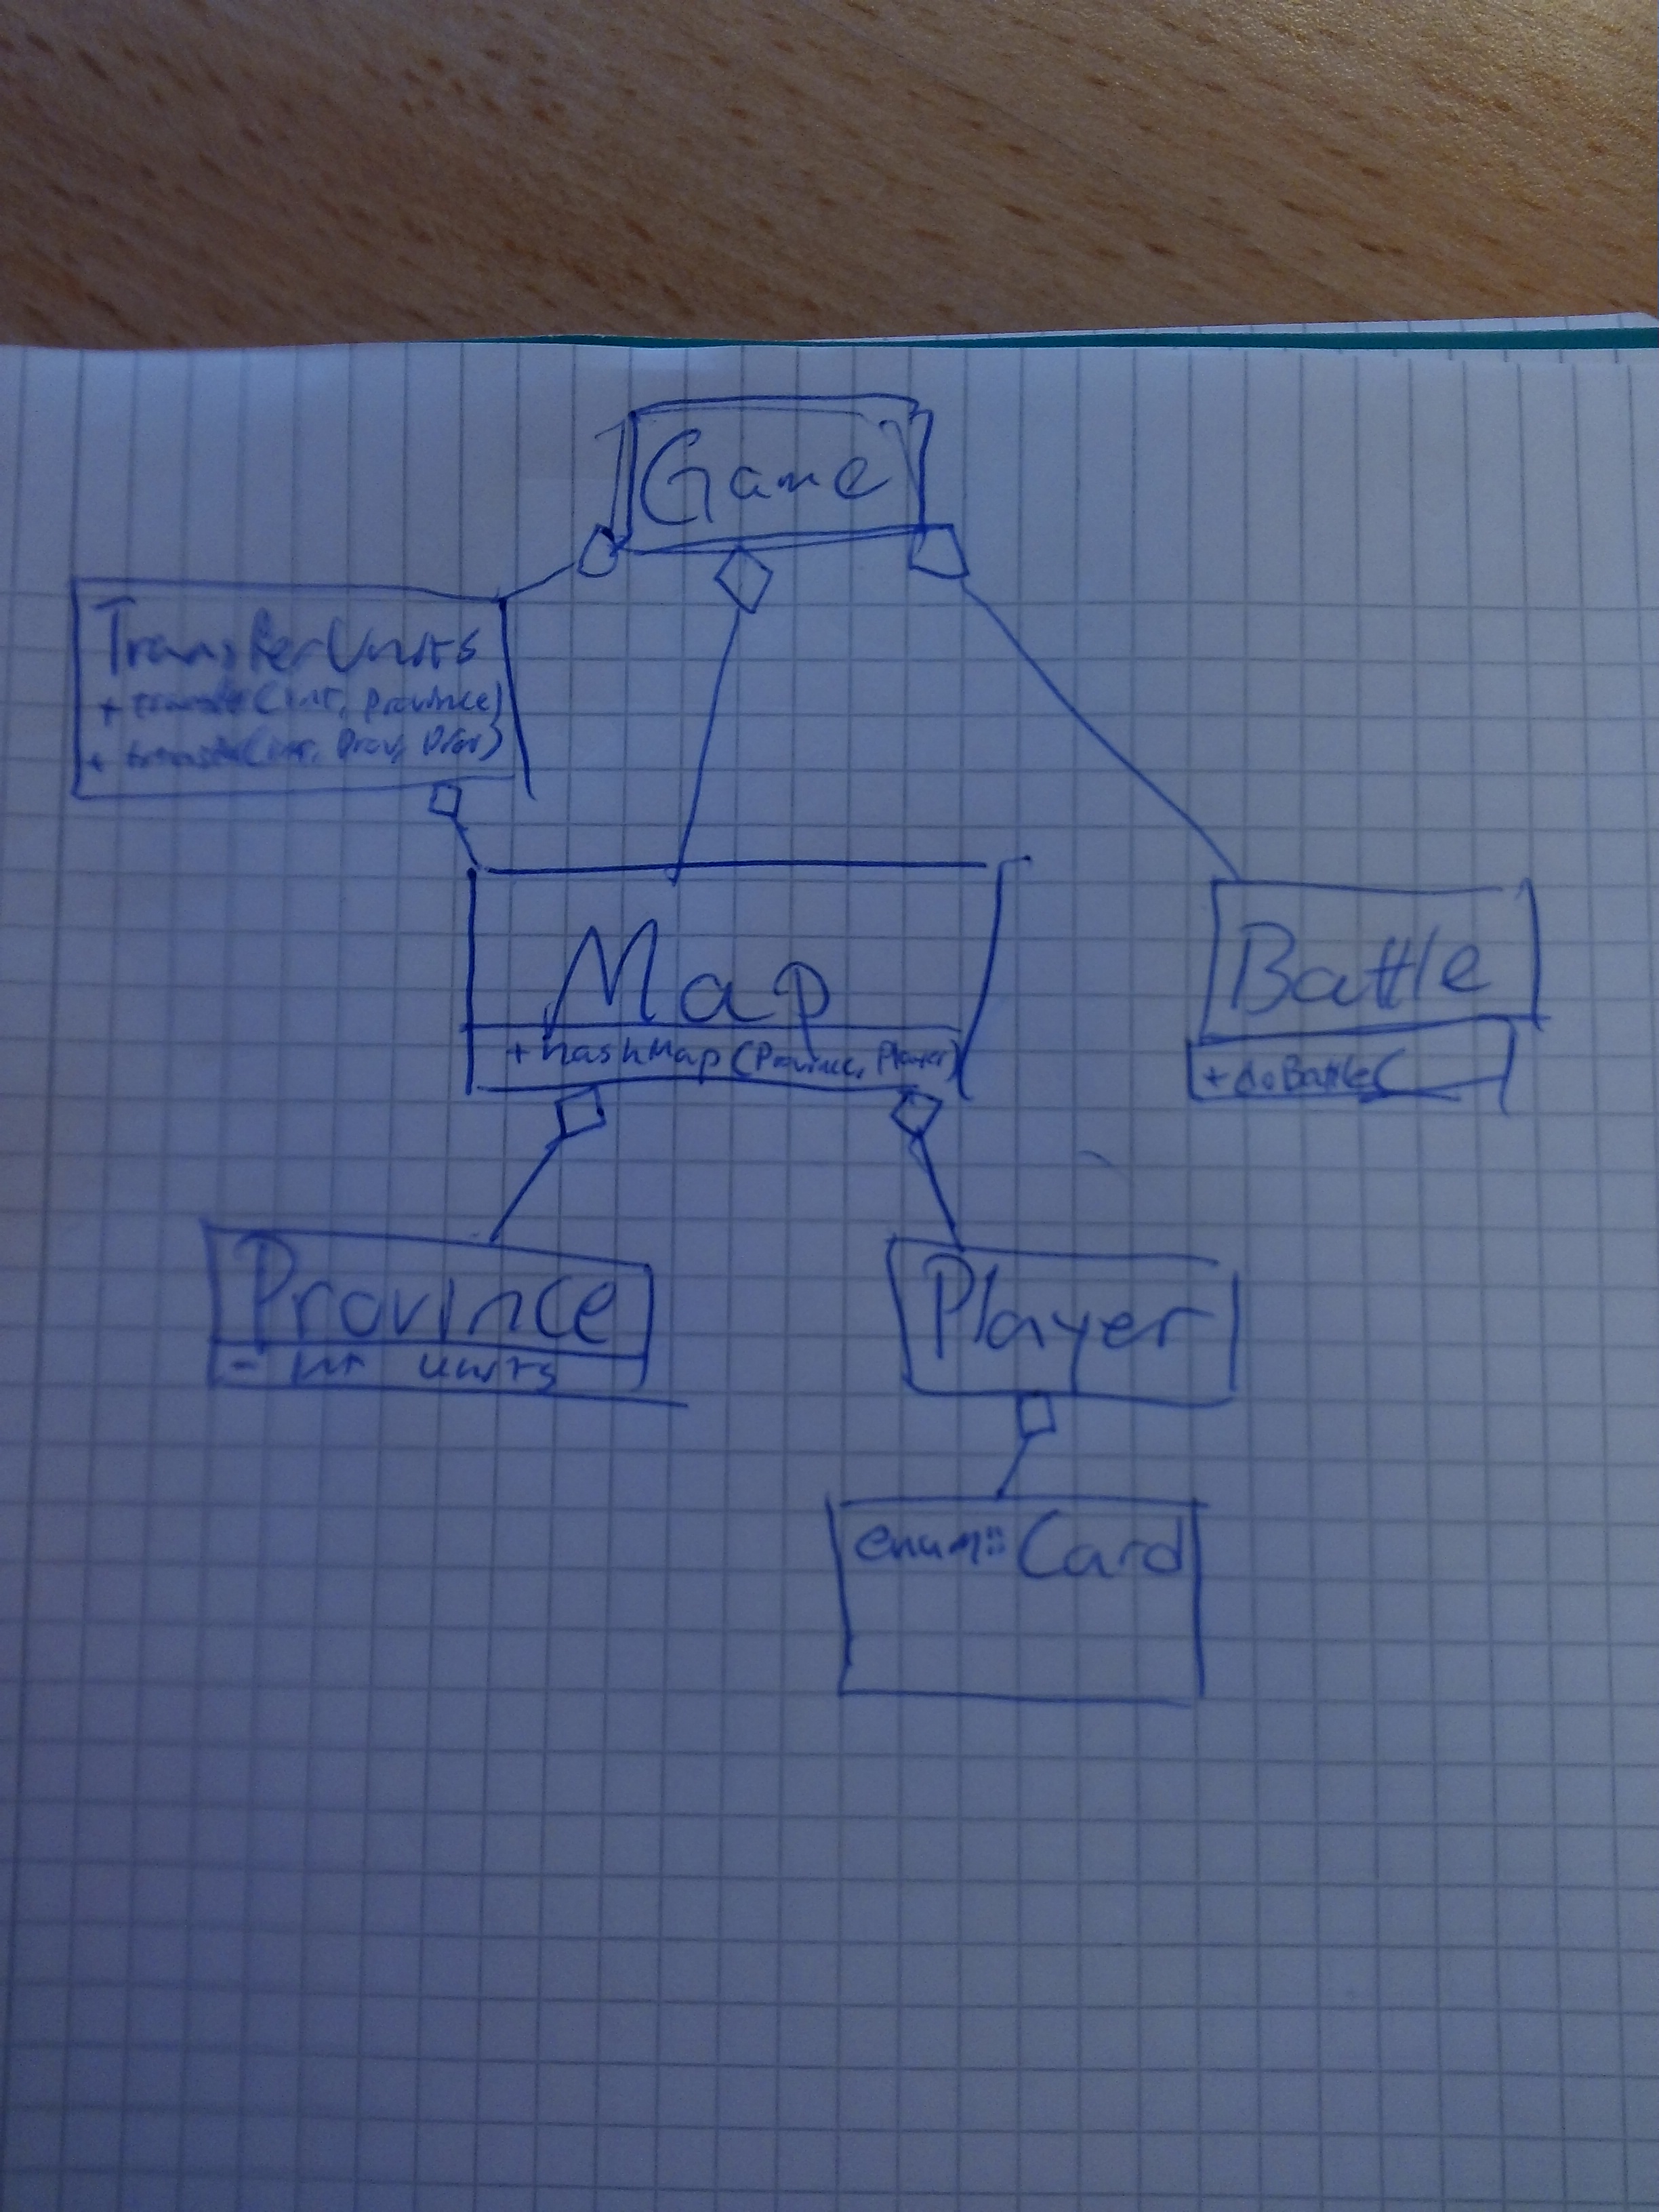 Game
TransferUnits
+ transfer(int, province)
+ transfer(int, Prov, Prov)
Map
+ hashMap(Province, Player)
Battle
+ doBattle(
Province
- int units
Player
enum:: Card